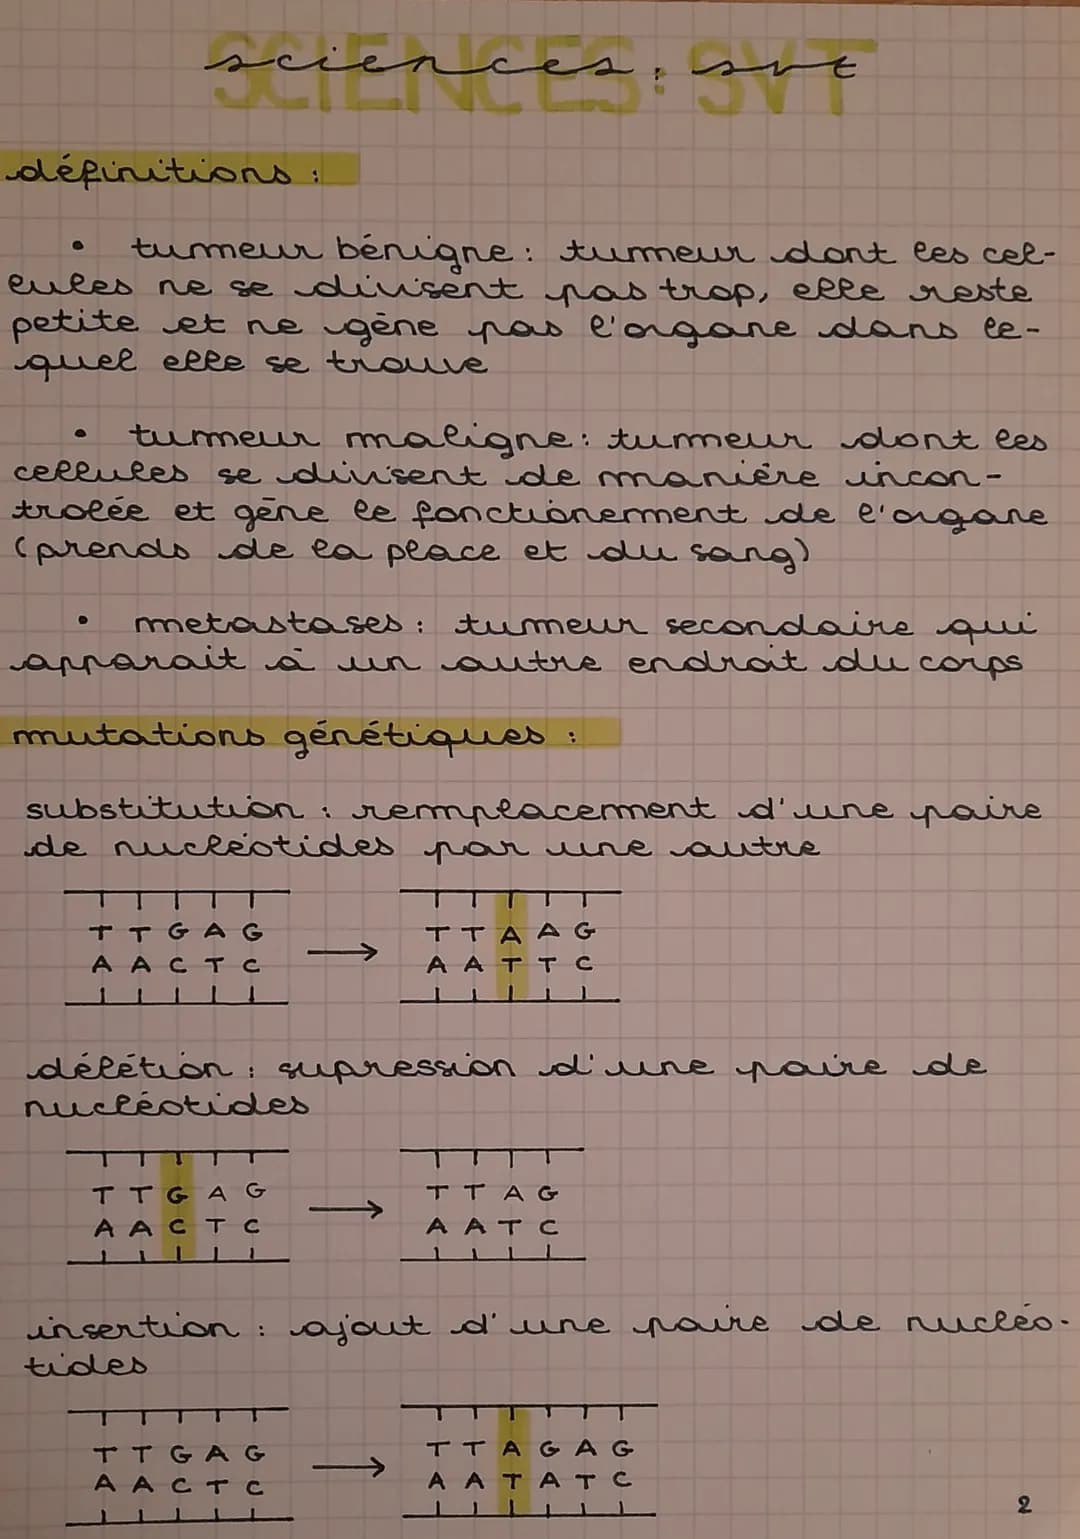 sciences: svt
SCIENCES: SVT
définitions :
• tumeur bénigne : tumeur dont les cel-
lules ne se divisent pas trop, elle reste
petite et ne gêne pas l'organe dans le-
quel elle se trouve
• tumeur maligne : tumeur dont les
cellules se divisent de manière incon-
trolée et gêne le fonctionement de l'organe
(prends de la place et du sang)
• metastases : tumeur secondaire qui
apparait à un autre endroit du corps
mutations génétiques :
substitution : remplacement d'une paire
de nucléotides par une autre
T T G A G → T T A A G
A A C T C A A T T C
délétion : supression d'une paire de
nucléotides
T T G A G → T T A G
A A C T C A A T C
insertion : ajout d'une paire de nucléo-
tides
T T G A G → T T A G A G
A A C T C A A T A T C
2